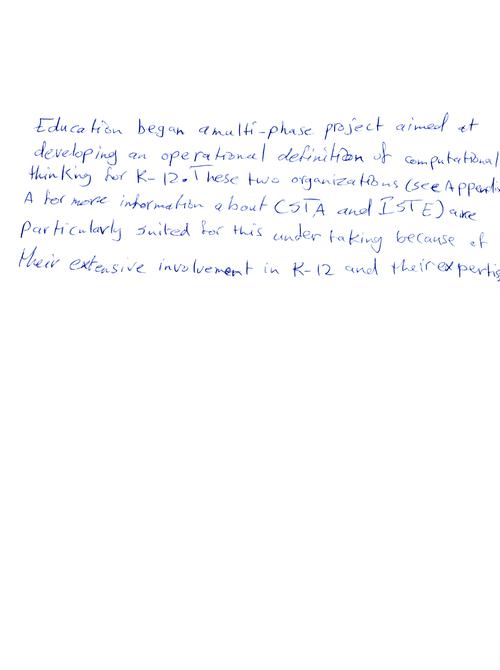 Education began a multi-phase project aimed at
developing an operational definition of computational
thinking for K-12. These two organizations (see Appendi
A for more information about CSTA and ISTE) are
particularly suited for this undertaking because of
their extensive involvement in K-12 and their expertis